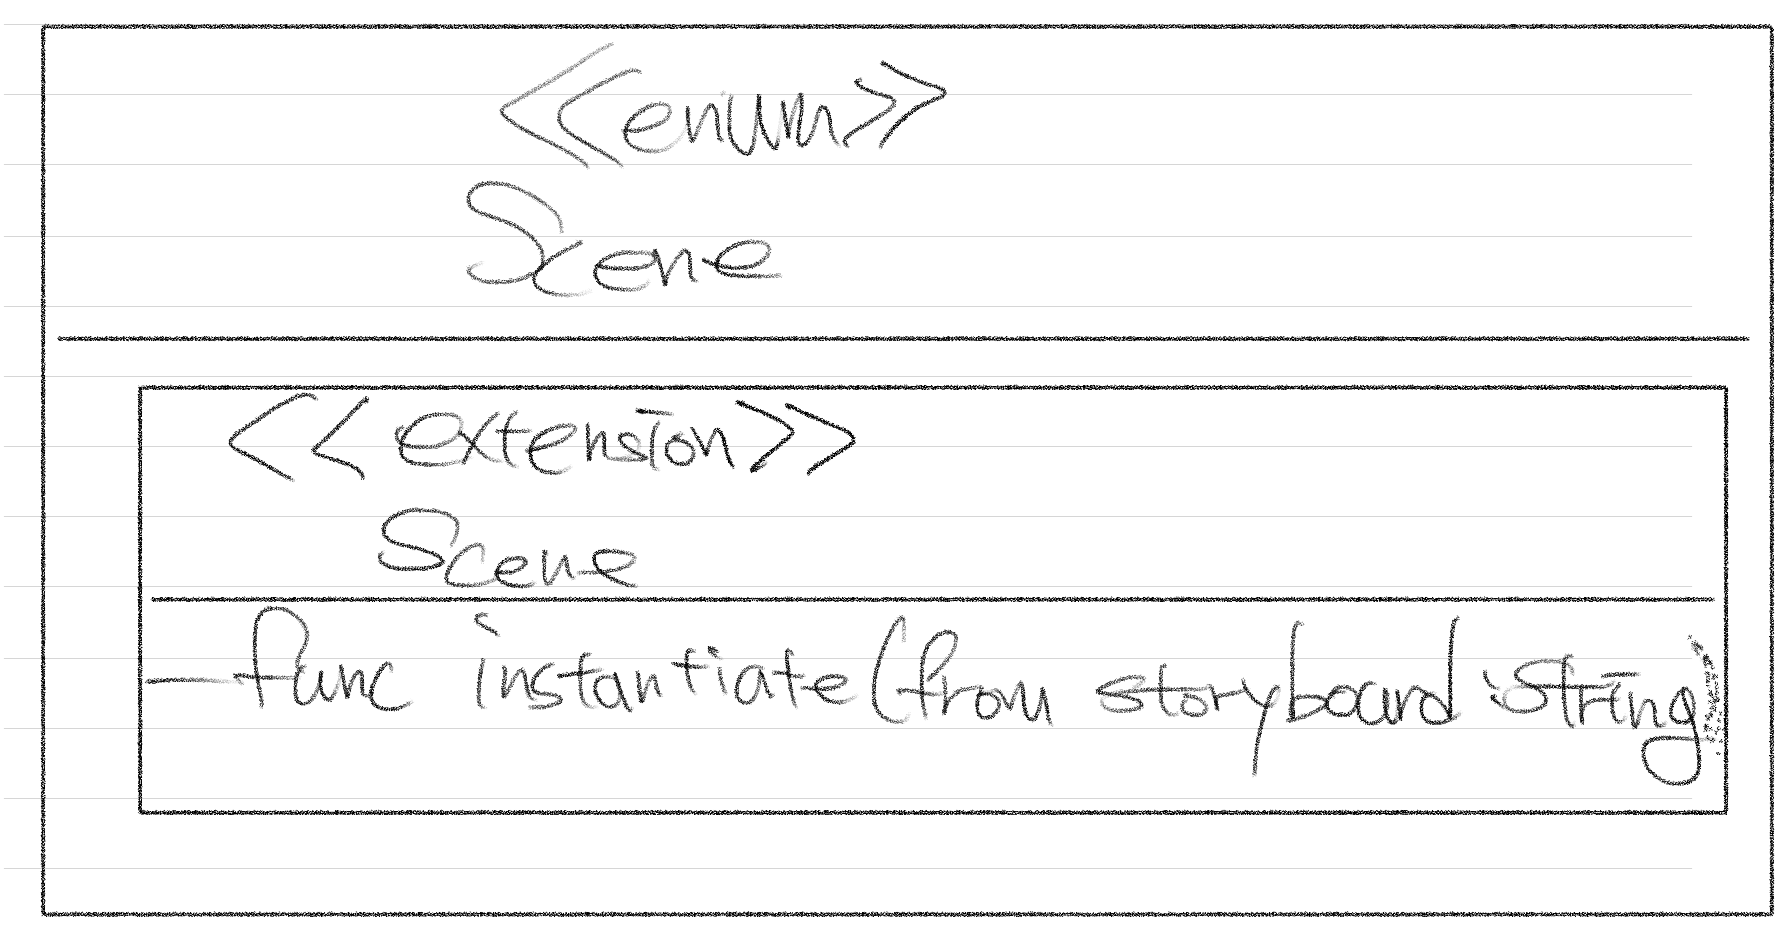 <<enum>>
Scene
<<extension>>
Scene
- func instantiate(from storyboard : String)